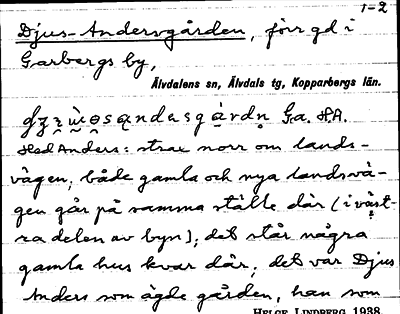 1-2
Djus-Andersgården, förr gd i
Garbergs by,
Älvdalens sn, Älvdals tg, Kopparbergs län.
Ga. HA.
Hed Anders: strax norr om lands-
vägen; både gamla och nya landsvä-
gen går på samma ställe där (i väst-
ra delen av byn); det står några
gamla hus kvar där; det var Djus
Anders som ägde gården, han som
HELGE LINDBERG 1938